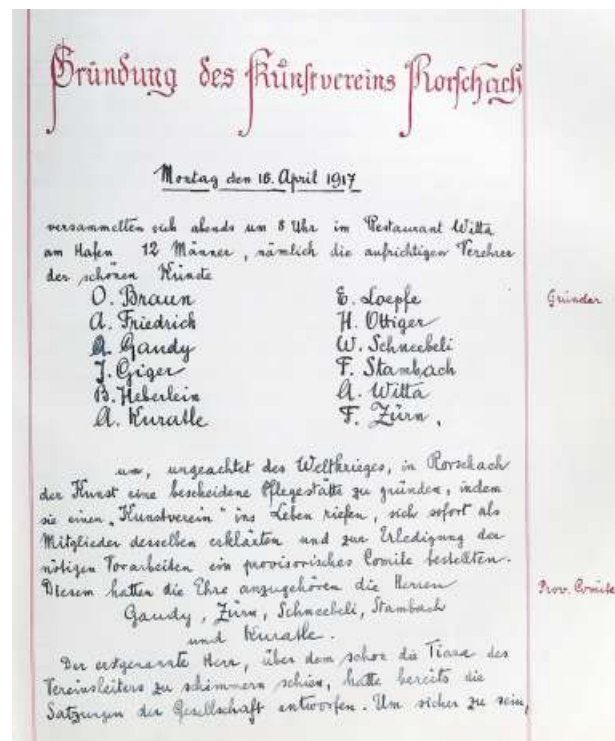 Gründung des Kunstvereins Rorschach
Montag den 16. April 1917
versammelten sich abends um 8 Uhr im Restaurant Witta
am Hafen 12 Männer, nämlich die aufrichtigen Verehrer
der schönen Künste
O. Braun
A. Friedrich
A. Gaudy
J. Giger
B. Heberlein
A. Kuratle
E. Loepfe
H. Ottiger
W. Schneebeli
F. Stambach
A. Witta
F. Zürn.
Gründer
um, ungeachtet des Weltkrieges, in Rorschach
der Kunst eine bescheidene Pflegestätte zu gründen, indem
sie einen „Kunstverein" ins Leben riefen, sich sofort als
Mitglieder desselben erklärten und zur Erledigung der
nötigen Vorarbeiten ein provisorisches Comite bestellten.
Diesem hatten die Ehre anzugehören die Herren
Prov. Comite
Gaudy, Zürn, Schneebeli, Stambach
und Kuratle.
Der erstgenannte Herr, über dem schon die Tiara des
Vereinsleiters zu schimmern schien, hatte bereits die
Satzungen der Gesellschaft entworfen. Um sicher zu sein,